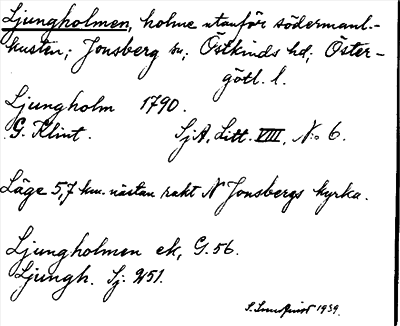 Ljungholmen, holme utanför södermanl.-
kusten; Jonsberg sn; Östkinds hd; Öster-
götl. l.
Ljungholm 1790.
G. Klint. SjA, Litt. VIII, No 6.
Läge 5,7 km. nästan rakt N Jonsbergs kyrka.
Ljungholmen ek, G. 56.
Ljungh. Sj: 251.
1939.